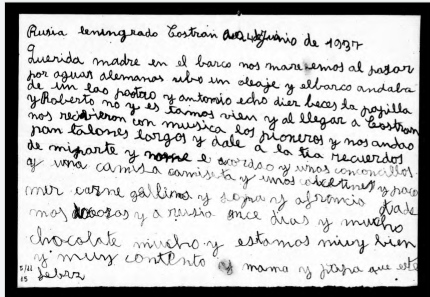 Rusia leningrado Costran a 24 Junio de 1937
Querida madre en el barco nos maremos al pasar
por aguas alemanas ubo un oleaje y elbarco andaba
de un lao paotro y antonio echo diez beces la papilla
y Roberto no y es tamos vien y al llegar a Costran
nos recibieron con musica los pioneros y nos andao
pan talones largos y dale a la tia recuerdos
de miparte y e y unos conconcillos
y una camisa camiseta y unos calcetines y paco
mer carne gallina y sopa y a francia
mos y a rusia once dias y mucho
chocolate mucho y estamos muy bien
y muy contento y mama y papa que este
5/22
15